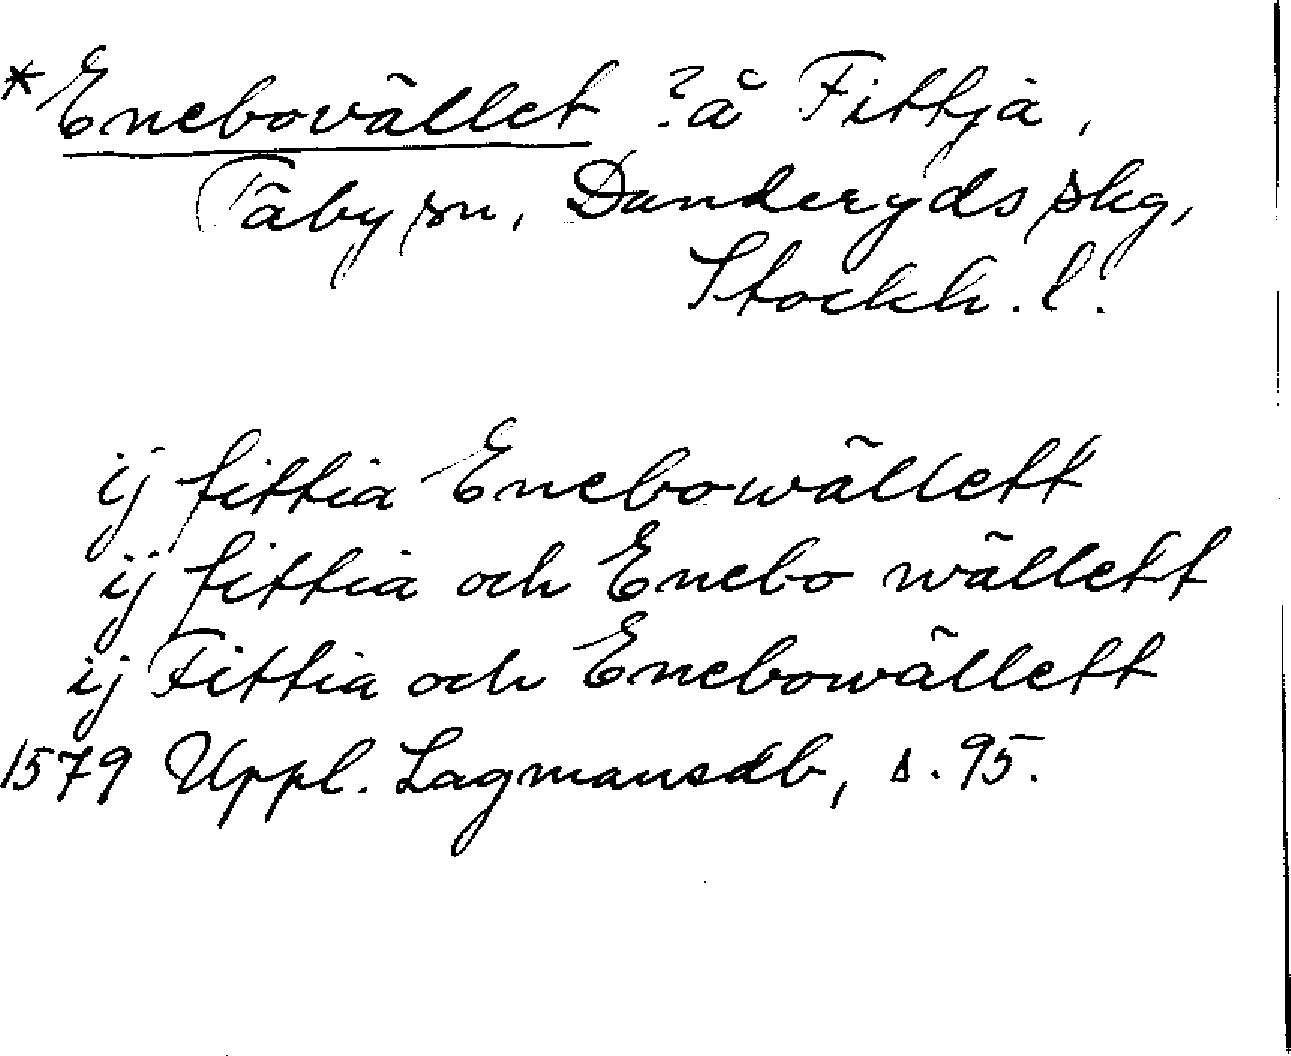 *Enebovället ?å Fittja,
Täby sn, Danderyds skg,
Stockh. l.
ij fittia Enebowällett
ij fittia och Enebo wällett
ij Fittia och Enebowällett
1579 Uppl. Lagmansdb, s. 95.